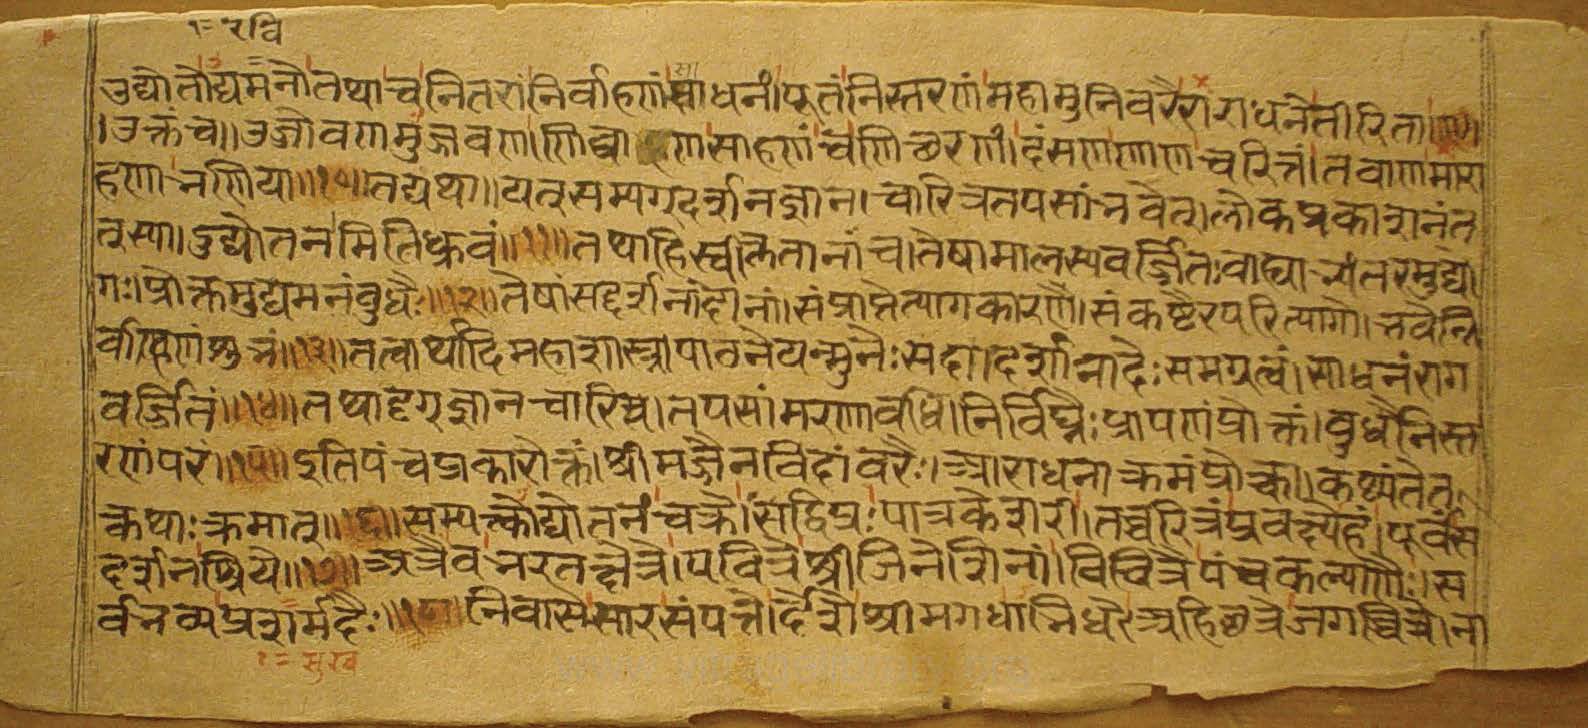 १= रवि
उद्योतोद्यमनौ तथा च नितरां निर्वाहणं साधनं। पूतं निस्तरणं महामुनिवरैराराधनेतीरिता॥
।उक्तं च॥ उज्जोवणमुज्जवण। णिव्वाहण साहणं च णिच्छरणं। दंसणणाण चरित्तं। तवाणमारा
हणा भणिया॥१०॥ तद्यथा॥ यत्सम्यग्दर्शनज्ञान। चारित्रतपसां भवेत्। लोकप्रकाशनं त
त्स्या। उद्योतनमिति ध्रुवं॥११॥ तथा हि स्वीकृतानां च। तेषामालस्यवर्ज्जितः वाह्याभ्यंतरमुद्यो
गः। प्रोक्तमुद्यमनं बुधैः॥१२॥ तेषां सद्दर्शनादीनां। संप्राप्ते त्यागकारणे। संकष्टैरपरित्यागो। भवेन्नि
र्वाहणं शुभं॥१३॥ तत्वार्थादिमहाशास्त्र। पाठने यन्मुनेः सदा। दर्शनादेः समग्रत्वं। साधनं राग
वर्ज्जितं॥१४॥ तथा दृग्ज्ञानचारित्र। तपसां मरणावधि। निर्विघ्नैः प्रापणं प्रोक्तं। बुधैर्निस्त
रणं परं॥१५॥ इति पंचप्रकारोक्तं। श्रीमज्जैनविदांवरैः। आराधनाक्रमं प्रोक्त्वा। कथ्यंते त
त्कथाः क्रमात्॥१६॥ सम्यत्क्वोद्योतनं चक्रे। सद्विप्रः पात्रकेशरी। तच्चरित्रं प्रवक्ष्येहं। पूर्वं स
दर्शनश्रिये॥१७॥ अत्रैव भरतक्षेत्रे। पवित्रे श्रीजिनेशिनां। विचित्रे पंचकल्याणैः। स
र्वभव्यप्रशर्मदैः॥१८॥ निवासे सारसंपत्ते। र्देशे श्रीमगधाभिधे अहिछत्रे जगच्चित्रे। ना
१= सुख